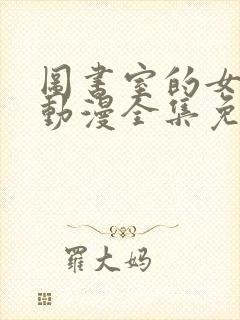 圖書室的女
動漫全集免
羅大妈